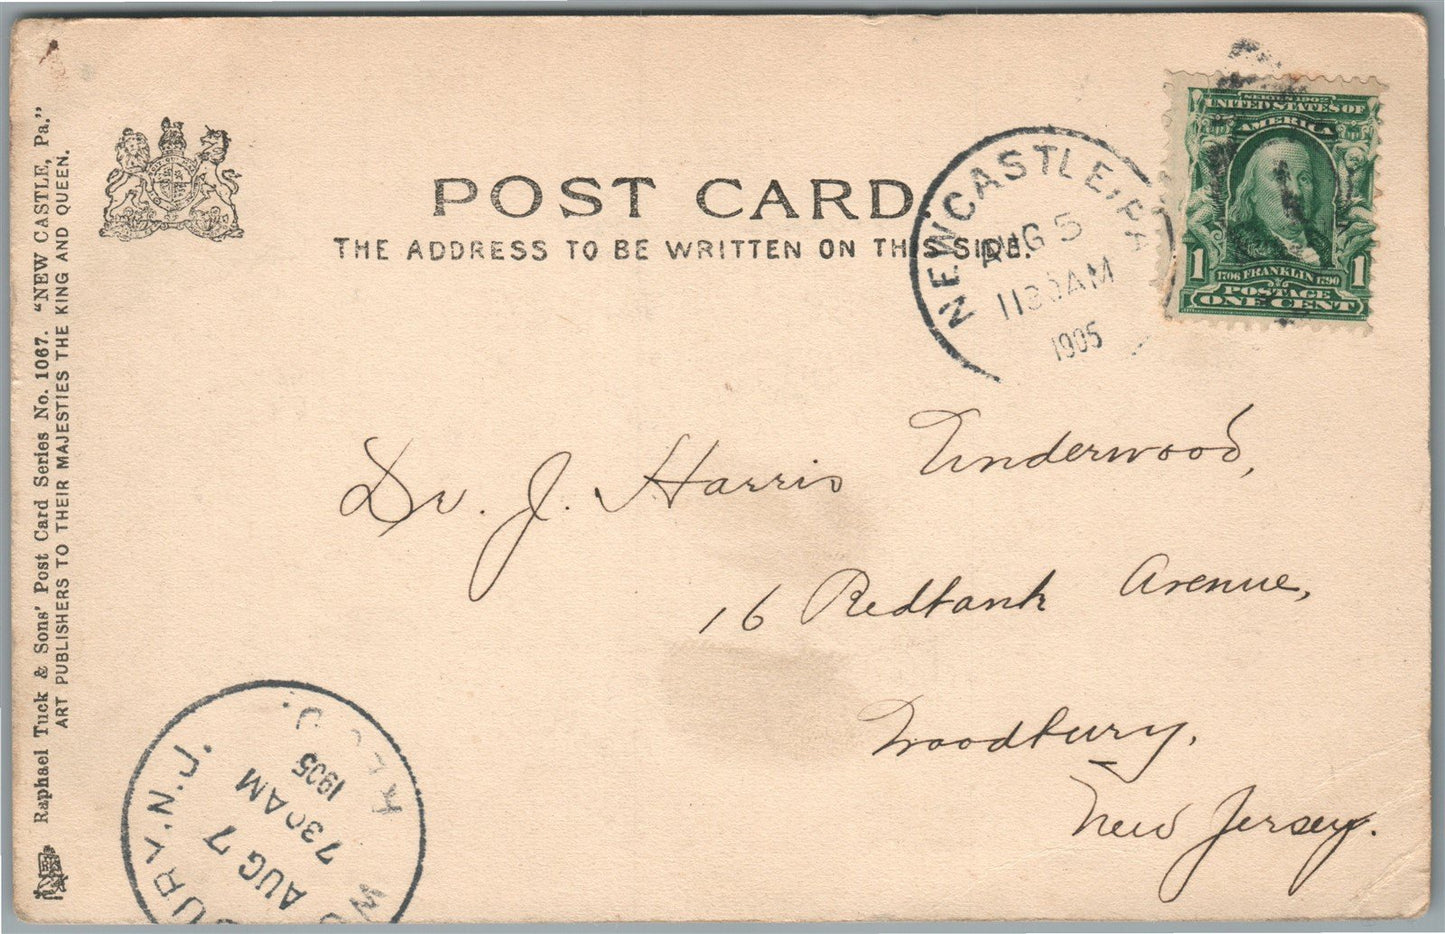 POST CARD
THE ADDRESS TO BE WRITTEN ON THIS SIDE.
NEWCASTLE, PA
AUG 5
1130AM
1905
SERIES 1902
UNITED STATES OF
AMERICA
1 1706 FRANKLIN 1790 1
POSTAGE
ONE CENT
Dr. J. Harris Underwood,
16 Redbank Avenue,
Woodbury,
New Jersey.
Raphael Tuck & Sons' Post Card Series No. 1067. "NEW CASTLE, Pa."
ART PUBLISHERS TO THEIR MAJESTIES THE KING AND QUEEN.
N.J.
AUG 7
730AM
1905